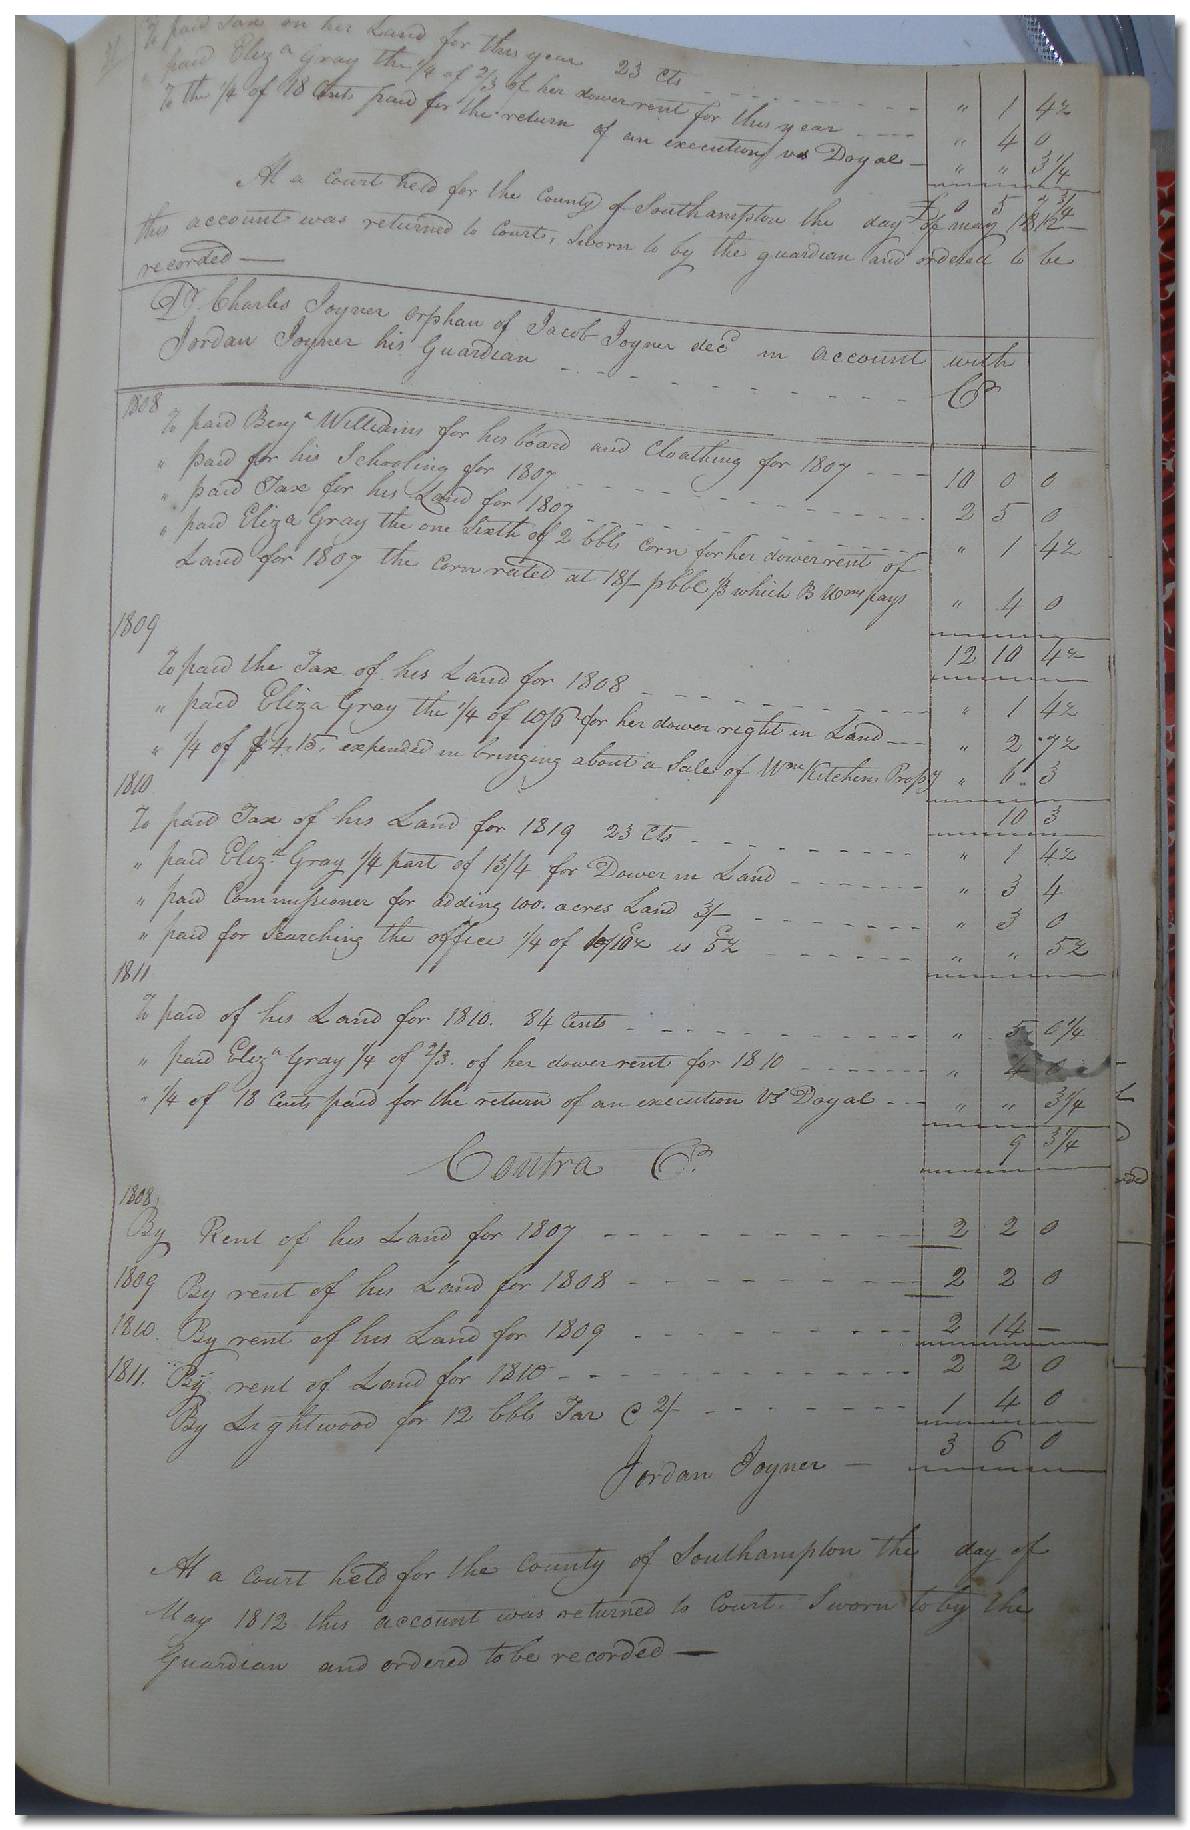 To paid Tax on her Land for this year 23 Cts " 1 4½
" paid Eliza Gray the ¼ of 2/3 of her dower rent for this year " 4 0
To the ¼ of 18 Cents paid for the return of an execution vs Doyal " " 3¼
£ 0 5 7¾
At a Court held for the County of Southampton the day of may 1812
this account was returned to Court, Sworn to by the guardian and ordered to be
recorded
Dr. Charles Joyner orphan of Jacob Joyner decd in account with
Jordan Joyner his Guardian Cr
1808
To paid Benja Williams for his board and Cloathing for 1807 10 0 0
" paid for his Schooling for 1807 2 5 0
" paid Tax for his Land for 1807 " 1 4½
" paid Eliza Gray the one Sixth of 2 bbls corn for her dower rent of
Land for 1807 the corn rated at 18/ pbbl ⅓ which B Wms pays " 4 0
12 10 4½
1809
To paid the Tax of his Land for 1808 " 1 4½
" paid Eliza Gray the ¼ of 10/6 for her dower right in Land " 2 7½
" ¼ of $4.15. expended in bringing about a Sale of Wm Kitchens Propy " 6 3
10 3
1810
To paid Tax of his Land for 1819 23 Cts " 1 4½
" paid Eliza Gray ¼ part of 13/4 for Dower in Land " 3 4
" paid Commissioner for adding 100. acres Land 3/ " 3 0
" paid for Searching the office ¼ of 1/10½ is 5½ " " 5½
1811
To paid of his Land for 1810. 84 Cents " 5 0¼
" paid Eliza Gray ¼ of 2/3. of her dower rent for 1810 " 4 0
" ¼ of 18 Cents paid for the return of an execution vs Doyal " " 3¼
9 3¼
Contra Cr.
1808
By Rent of his Land for 1807 2 2 0
1809 By rent of his Land for 1808 2 2 0
1810. By rent of his Land for 1809 2 14 —
1811. By rent of Land for 1810 2 2 0
By Lightwood for 12 bbls Tar @ 2/ 1 4 0
3 6 0
Jordan Joyner —
At a Court held for the County of Southampton the day of
May 1812 this account was returned to Court. Sworn to by the
Guardian and ordered to be recorded —